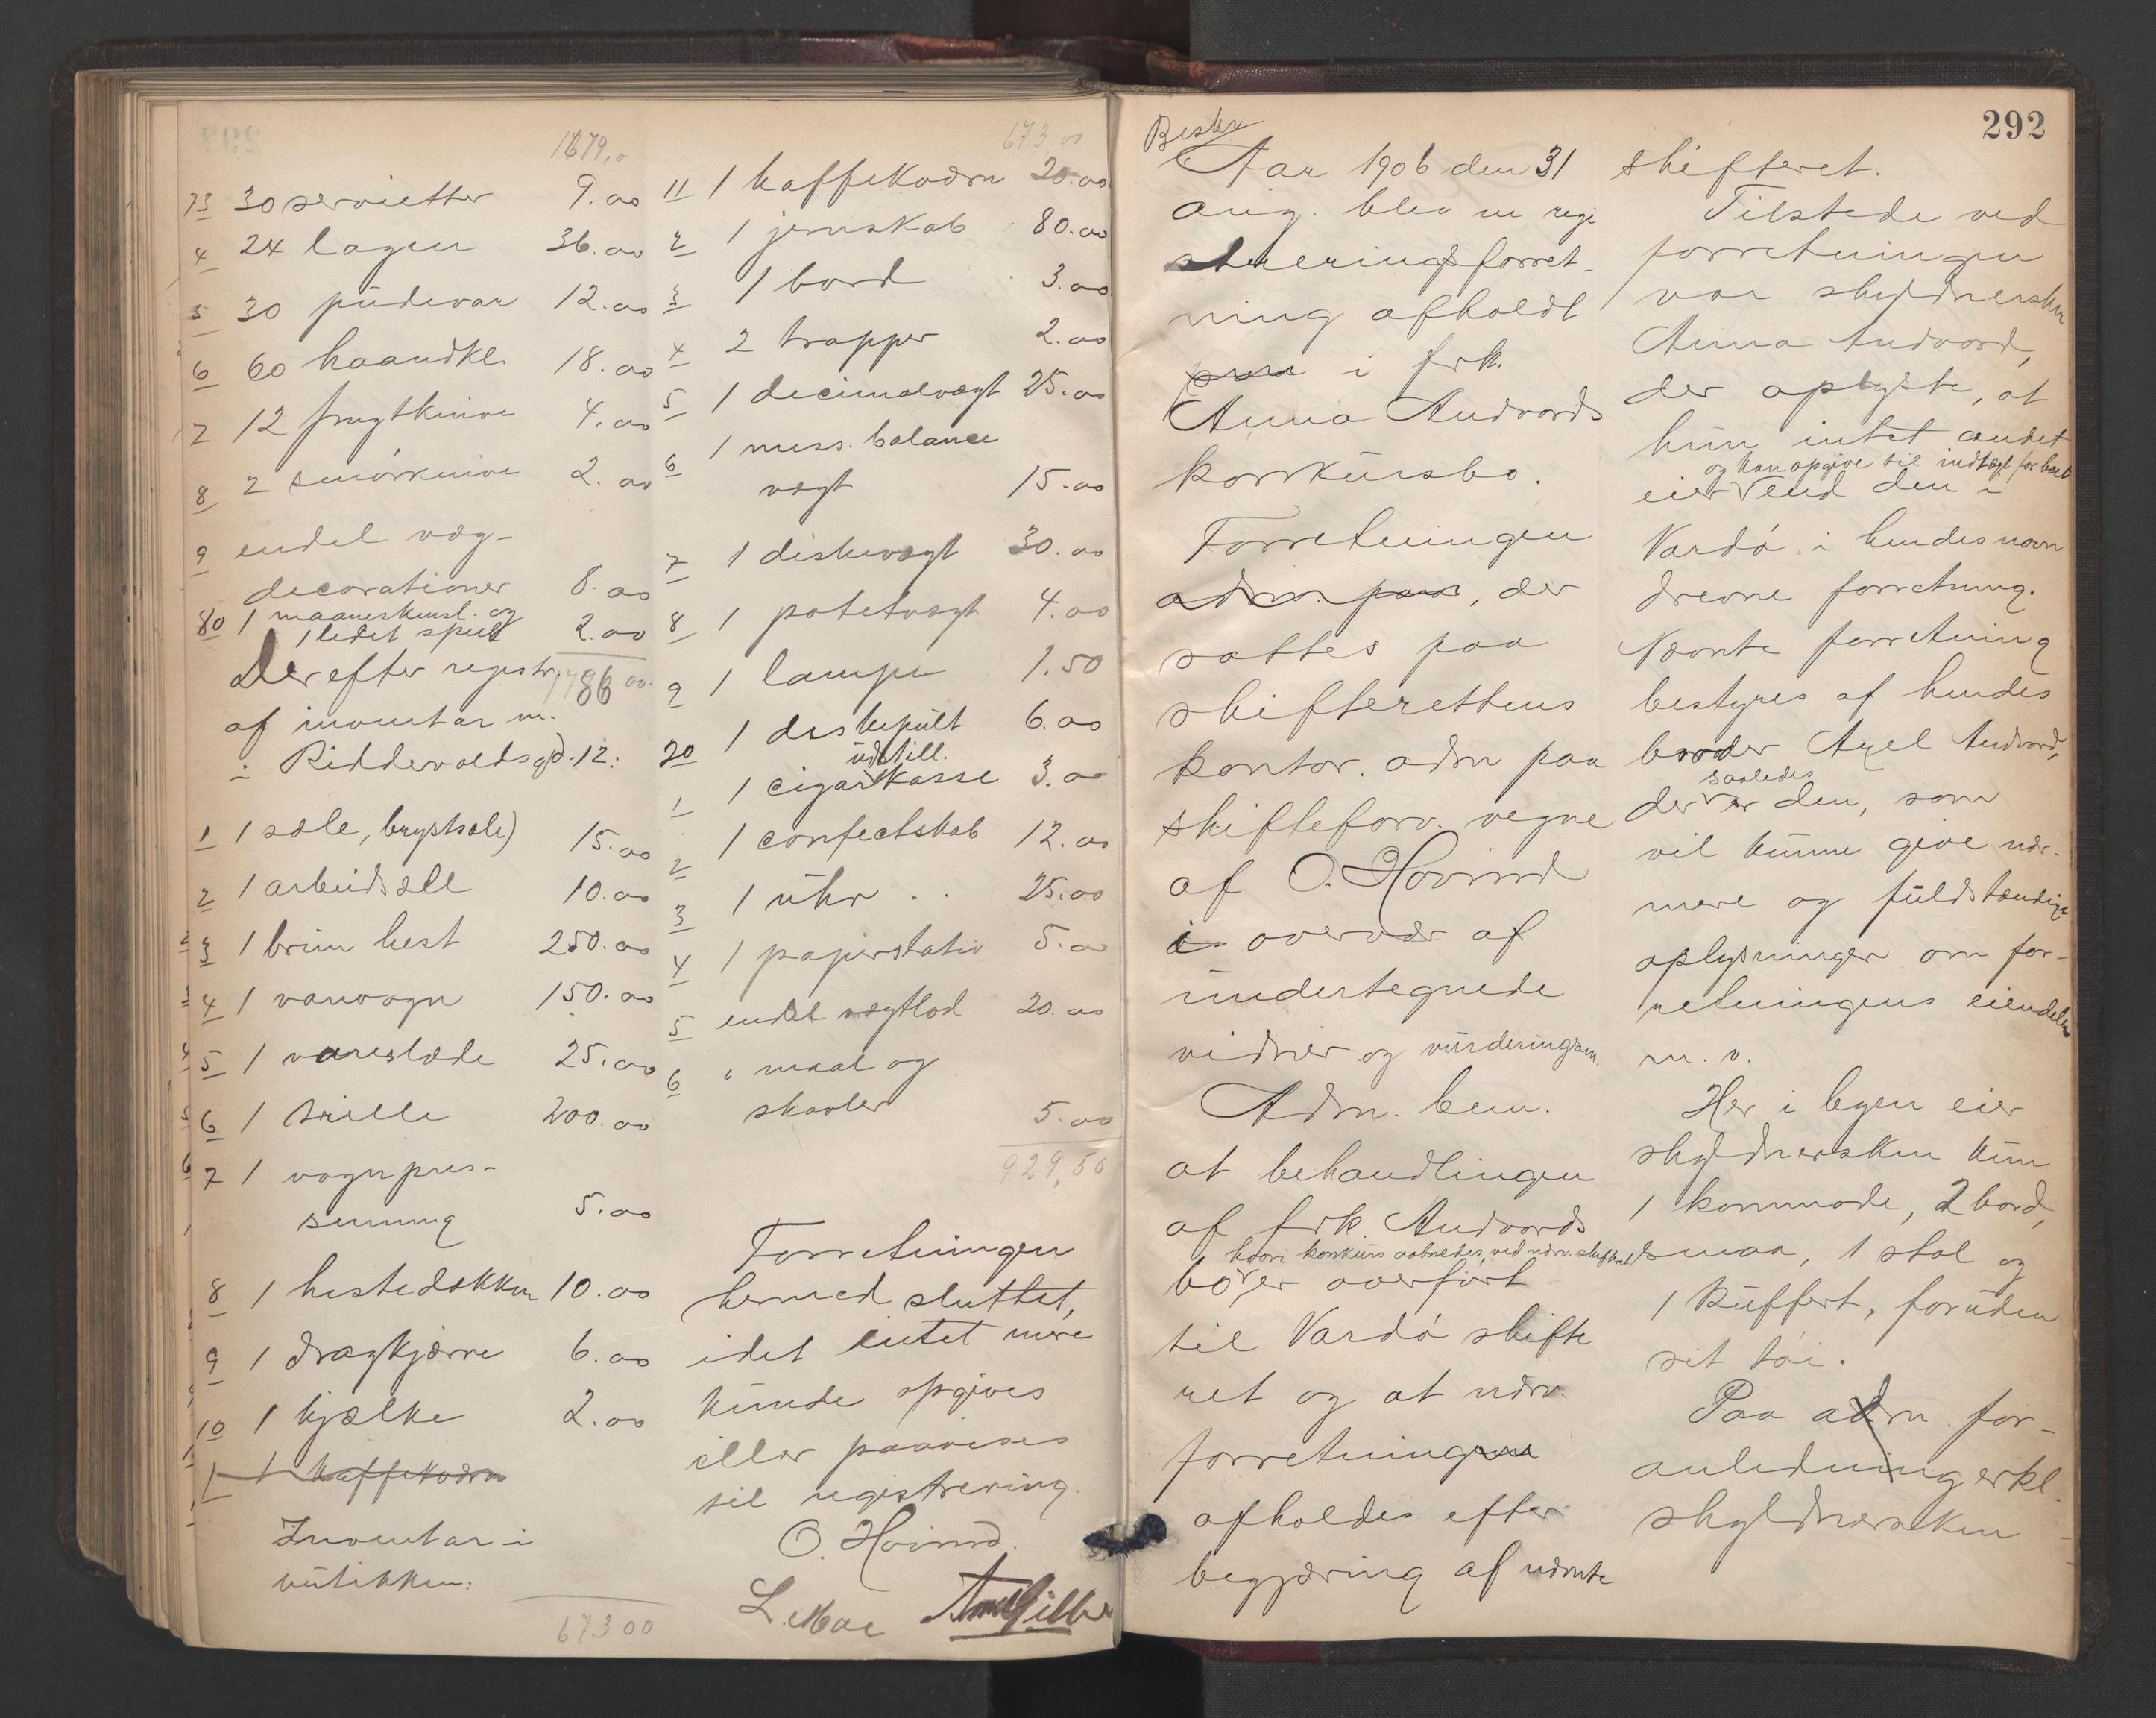 1679,0
73 30 servietter 9.00
4 24 lagen 36.00
5 30 pudevar 12.00
6 60 haandkl. 18.00
7 12 frugtknive 4.00
8 2 smörknive 2.00
9 endel væg-
decorationer 8.00
80 1 maaneskensl. og
1 ledet speil 2.00
Derefter registr. 1786 00.
af inventar m.
i Riddervoldsgd. 12:
1 1 sæle, brystsele) 15.00
2 1 arbeidssele 10.00
3 1 brun hest 250.00
4 1 varevogn 150.00
5 1 vareslæde 25.00
6 1 trille 200.00
7 1 vognpres-
senning 5.00
8 1 hestedækken 10.00
9 1 dragkjærre 6.00
10 1 kjælke 2.00
1 1 kaffekværn
Inventar i
butikken:
673 00
673 00
11 1 kaffekværn 20.00
2 1 jernskab 80.00
3 1 bord 3.00
4 2 trapper 2.00
5 1 decimalvægt 25.00
6 1 mess. balance
vægt 15.00
7 1 diskevægt 30.00
8 1 potetvægt 4.00
9 1 lampe 1.50
20 1 diskepult 6.00
udstill.
1 1 cigarkasse 3.00
2 1 confectskab 12.00
3 1 uhr . . 25.00
4 1 papirstativ 5.00
5 endel vægtlod 20.00
6 " maal og
skovler 5.00
929,50
Forretningen
hermed sluttet,
idet intet mere
kunde opgives
eller paavises
til registrering.
O. Hovind.
L. Moe
292
Beskr
Aar 1906 den 31
aug. blev en regi
streringsforret-
ning afholdt
i frk.
Anna Andvords
konkursbo.
Forretningen
adm. paa, der
sattes paa
skifterettens
kontor. adm paa
skifteforv. vegne
af O. Hovind
i overvær af
undertegnede
vidner og vurderingsm.
Adm. bem.
at behandlingen
af frk. Andvords
hvori konkurs aabnedes ved nærv. skifteret
bo er overført
til Vardö skifte
ret og at nærv.
forretningen
afholdes efter
begjæring af nævnte
skifteret.
Tilstede ved
forretningen
var skyldnersken
Anna Andvord,
der oplyste, at
hun intet andet
og kan opgive til indtægt for boet
eier end den i
Vardö i hendes navn
drevne forretning.
Nævnte forretning
bestyres af hendes
broder Axel Andvord,
saaledes
der er den, som
vil kunne give nær-
mere og fuldstændige
oplysninger om for-
retningens eiendele
m. v.
Her i byen eier
skyldnersken kun
1 kommode, 2 bord,
smaa, 1 stol og
1 kuffert, foruden
sit töi.
Paa adm. for-
anledning erkl.
skyldnersken